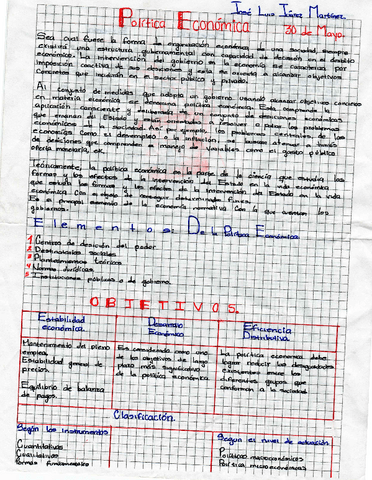 José Luis Yáñez Martínez
Política Económica
30 de Mayo.
Sea cual fuere la forma de organización económica de una sociedad, siempre
existirá una estructura gubernamental con capacidad de decisión en el ámbito
económico. La intervención del gobierno en la economía se caracteriza por
imposición coactiva de sus decisiones y esta de acuerdo a alcanzar objetivos
concretos que incidirán en el sector público y privado.
Al conjunto de medidas que adopta un gobierno usando alcanzar objetivos concretos
en materia económica se denomina política económica. Esta comprende la
aplicación consciente y deliberada de un conjunto de decisiones económicas
que emanan del Estado y están orientadas a resolver o paliar los problemas
económicos de la sociedad. Así por ejemplo, los problemas centrales de las
economías como el desempleo o la inflación, se buscan atenuar a través
de decisiones que comprenden el manejo de variables como el gasto público
oferta monetaria, etc.
Teóricamente, la política económica es la parte de la ciencia que estudia las
formas y los efectos de la intervención del Estado en la vida económica
que estudia las formas y los efectos de la intervención del Estado en la vida
económica con objeto de conseguir determinados fines.
Es el principal escenario de la economía normativa. Con la que cuentan los
gobiernos.
Elementos: De la Política Económica
1 Centros de decisión del poder.
2 sociales
3 Planteamientos teóricos
4 Normas Jurídicas.
5 Instituciones públicas o de gobierno.
OBJETIVOS.
Estabilidad económica.
Mantenimiento del pleno
empleo.
Estabilidad general de
precios.
Equilibrio de balanza
de pagos.
Desarrollo
Económico
Es considerado como uno
de los objetivos de largo
plazo más significativo
de la política económica
Eficiencia
Distributiva
La política económica debe
lograr reducir las desigualdades
existentes entre los
diferentes grupos que
conforman a la sociedad
Clasificación.
Según los instrumentos
Cuantitativas
Cualitativas
Reformas fundamentales
Según el nivel de actuación
Políticas macroeconómicas
Política microeconómicas